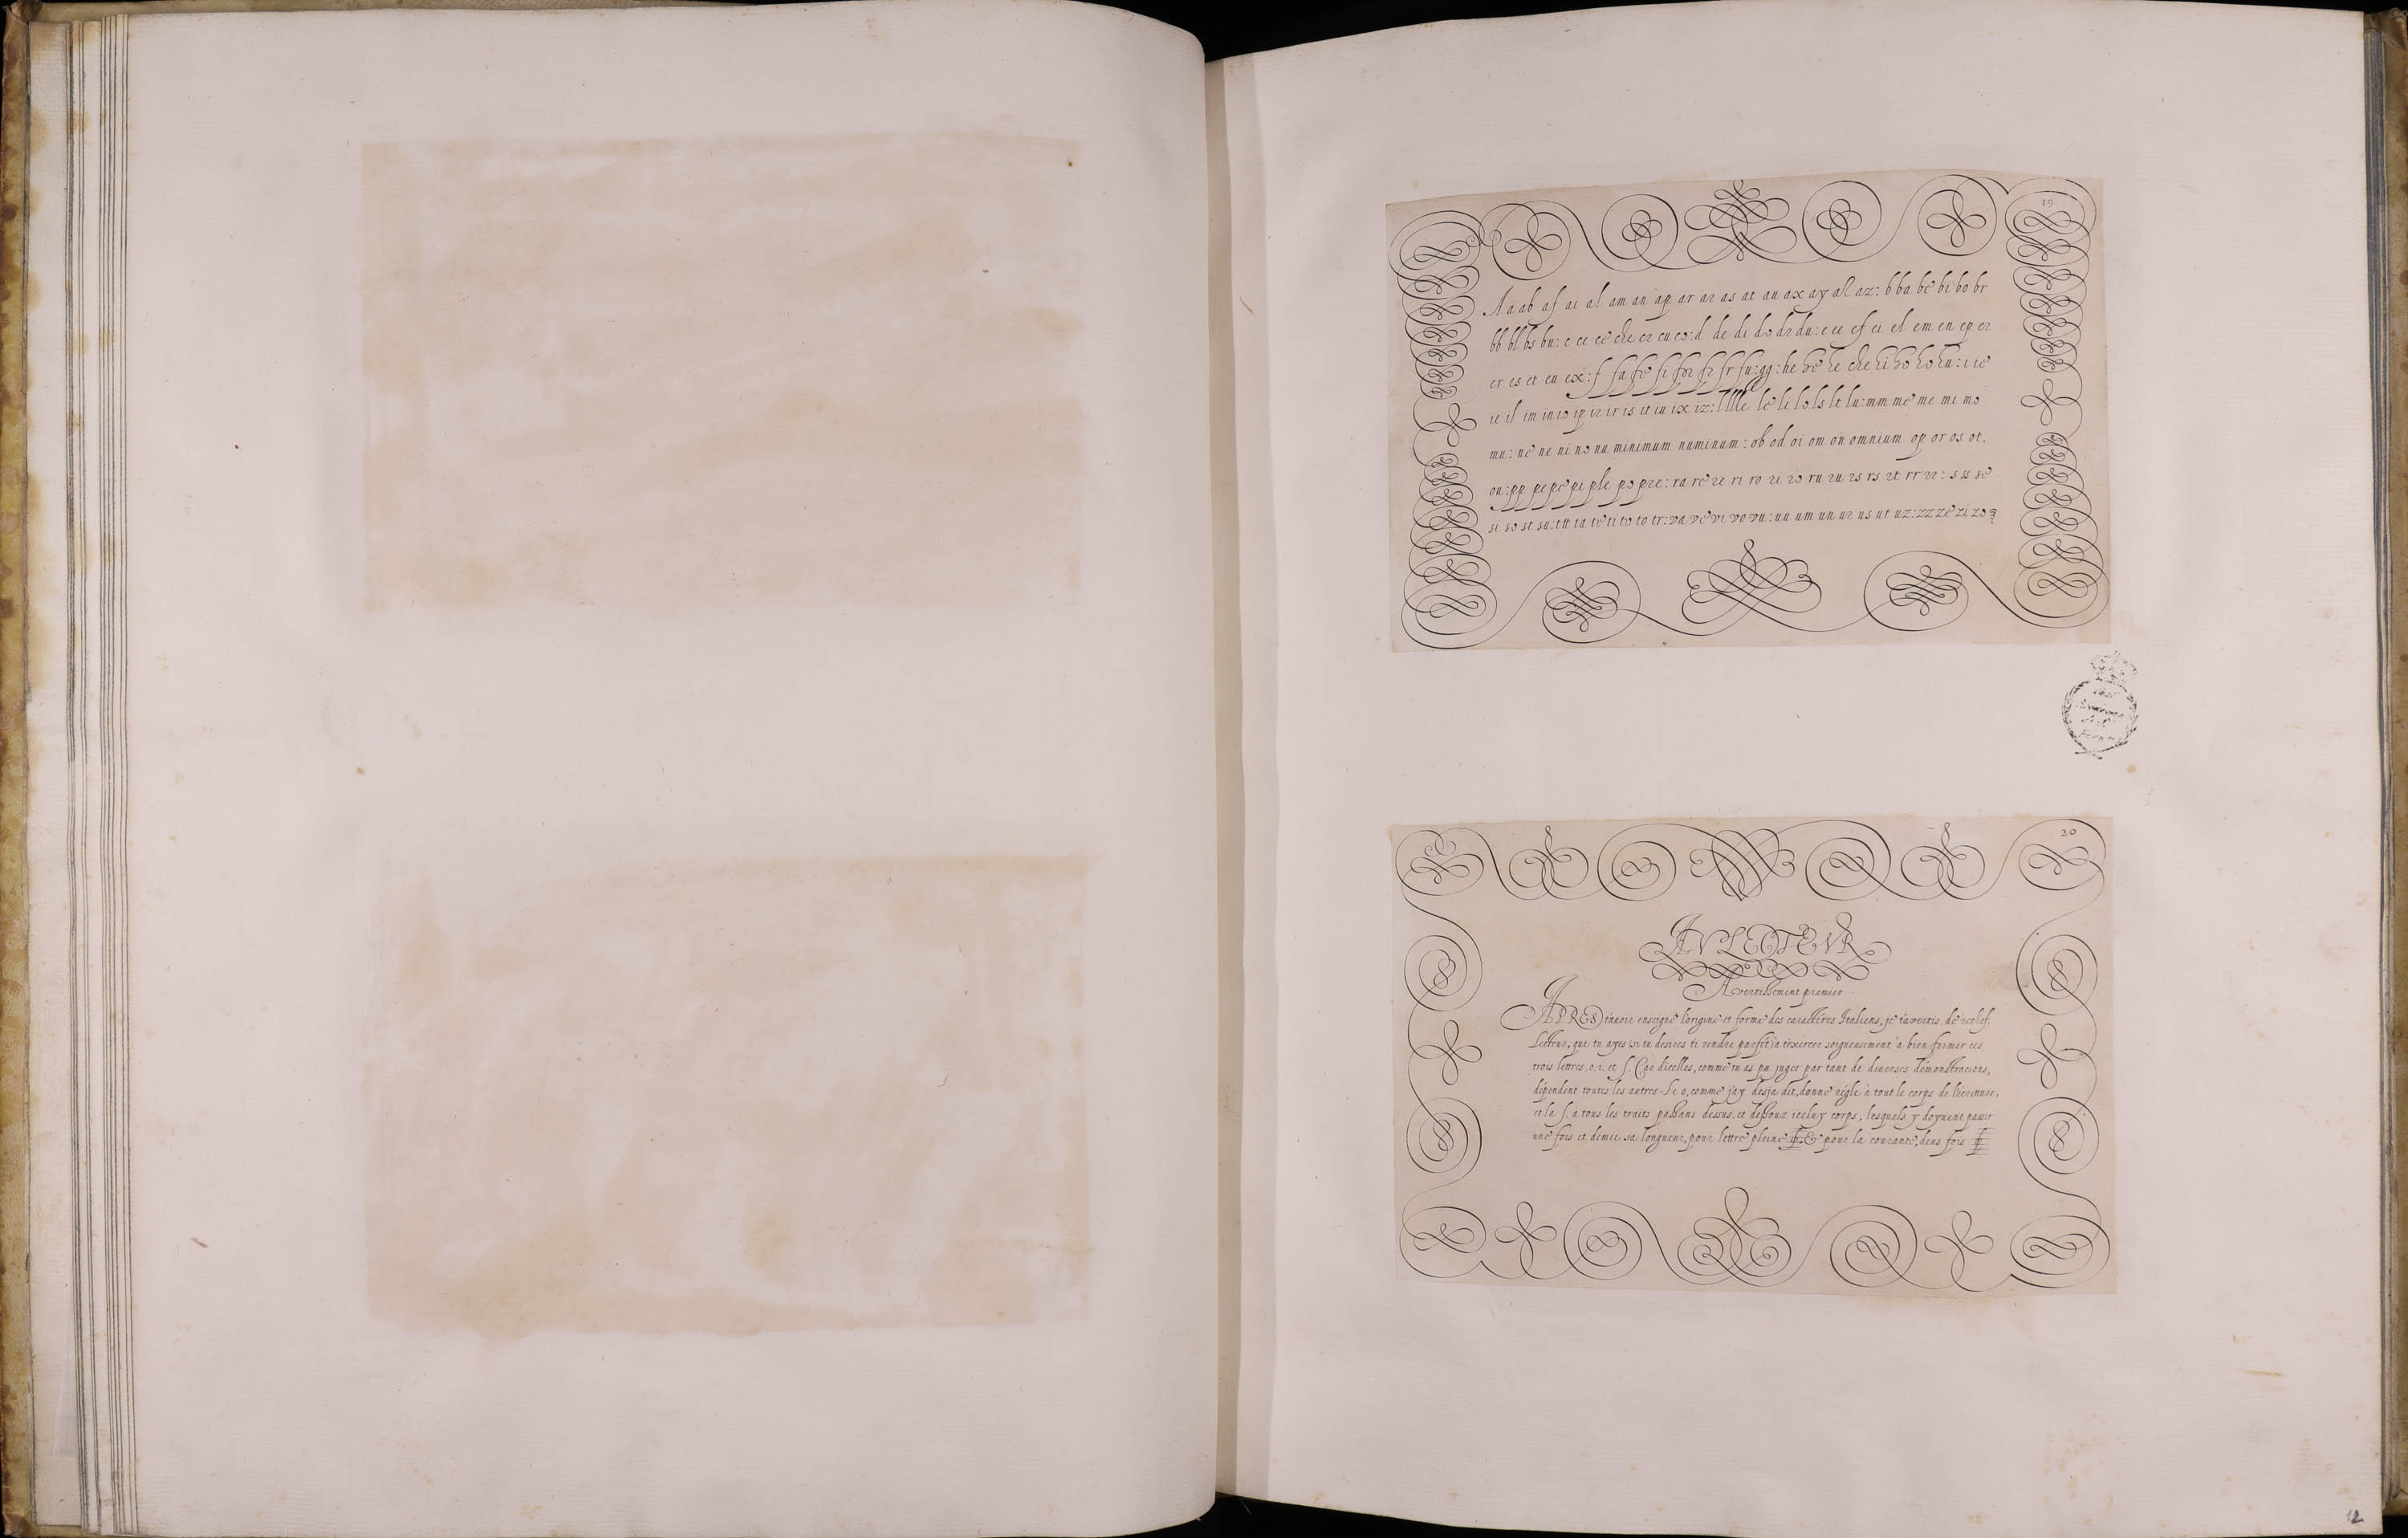 19
A a ab af ai al am an ap ar as at au ax ay az: b ba be bi bo br
bb bl bs bu: c ce ce che cr cu co: d de di do du: e ee ef ei el em en ep er
er es et eu ex: f fa fe fi for fr fr fu: gg: he he he che hi ho ho hu: i ie
ie il im in io ip ir ir is it iu ix iz: l llle le li lo ls lt lu: mm me me mi mo
mu: ne ne ni no nu minimum numinum: ob od oi om on omnium op or os ot.
ou: pp pe pe pi ple po pre: ra re re ri ro ri ro ru ru rs rs rt rr rr: s ss se
si so st su: ttt ta te ti to to tr: va ve vi vo vu: uu um un ur us ut uz: zz ze zi zo
20
AV LECTEVR
Avertissement premier
APRES t'avoir enseigné l'origine et forme des caracteres Italiens, je t'avertis de rechef,
Lecteur, que tu ayes (si tu desires te rendre parfet) a t'exercer soigneusement a bien former ces
trois lettres, o, i, et f. Car d'icelles, comme tu as pu juger par tant de diuerses demonstracions,
dépendent toutes les autres. Le o, comme j'ay desja dit, donne régle à tout le corps de l'écriture,
et la f, a tous les traits passans dessus, et dessouz iceluy corps, lesquels y doyuent passer
une fois et demie sa longueur, pour lettre pleine & pour la courante, deus fois
12